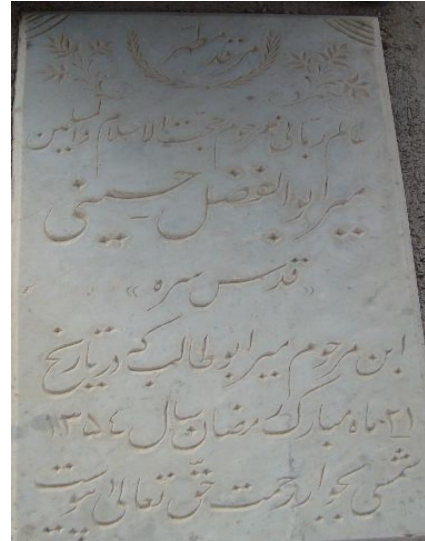 مرقد مطهر
عالم ربانی مرحوم حجت الاسلام والمسلمین
میر ابوالفضل حسینی
«قدس سره»
ابن مرحوم میر ابوطالب که در تاریخ
۲۱ ماه مبارک رمضان سال ۱۳۵۴
شمسی بجوار رحمت حق تعالی پیوست